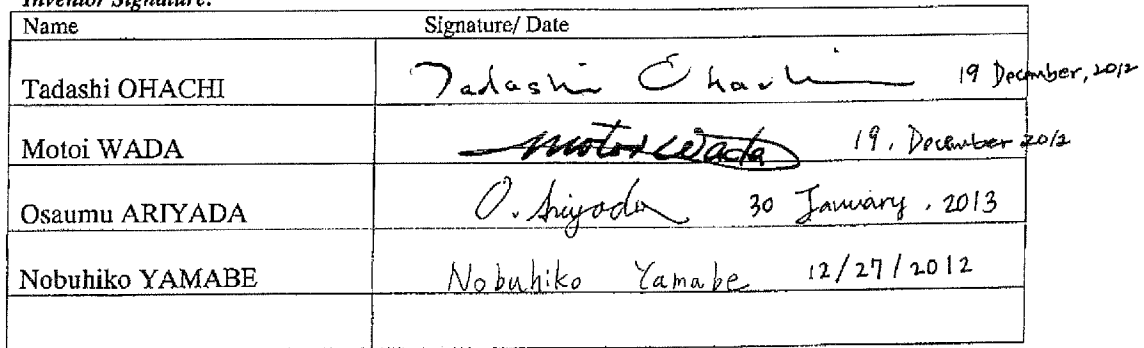 Inventor Signature:
Name Signature/ Date
Tadashi OHACHI Tadashi Ohachi 19 December, 2012
Motoi WADA Motoi Wada 19. December 2012
Osaumu ARIYADA O. Ariyada 30 January . 2013
Nobuhiko YAMABE Nobuhiko Yamabe 12/27/2012